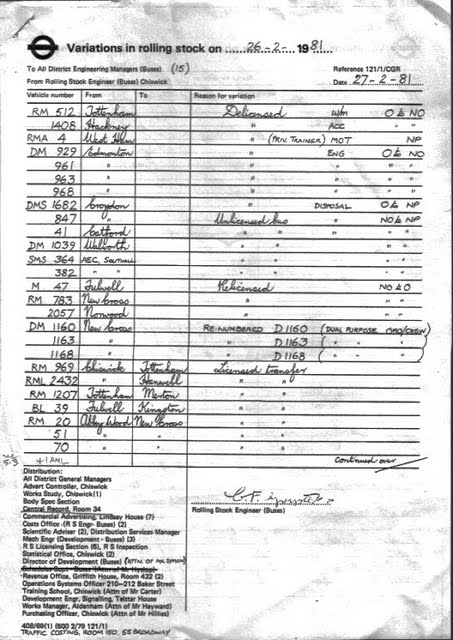 Variations in rolling stock on 26-2- 1981
To All District Engineering Managers (Buses) (15) Reference 121/1/CGR
From Rolling Stock Engineer (Buses) Chiswick Date 27-2-81
Vehicle number From To Reason for variation
RM 512 Tottenham Delicensed w/m O L NO
1408 Hackney " ACC " "
RMA 4 West Ham " (PRIV. TRAINER) MOT NP
DM 929 Edmonton " ENG O L NO
961 " " " " "
963 " " " " "
968 " " " " "
DMS 1682 Croydon " DISPOSAL O L NP
847 " Unlicensed bus NO L NP
41 Catford " " " "
DM 1039 Walworth " " " "
SMS 364 AEC, Southall " " " "
382 " " " " " "
M 47 Fulwell Relicensed NO L O
RM 783 New Cross "
2057 Norwood "
DM 1160 New Cross RE-NUMBERED D 1160 (DUAL PURPOSE OMO/CREW)
1163 " " D 1163 ( " " " )
1168 " " D 1168 ( " " " )
RM 969 Chiswick Tottenham Licensed transfer
RML 2432 " Hanwell " "
RM 1207 Tottenham Merton " "
BL 39 Fulwell Kingston " "
RM 20 Abbey Wood New Cross " "
51 " " " "
70 " " " "
+1 AML continued over
Distribution:
All District General Managers
Advert Controller, Chiswick
Works Study, Chiswick(1)
Body Spec Section
Central Record, Room 34
Commercial Advertising, Lindsay House (7)
Costs Office (R S Engr- Buses) (2)
Rolling Stock Engineer (Buses)
Scientific Adviser (2), Distribution Services Manager
Mech Engr (Development - Buses) (3)
R S Licensing Section (6), R S Inspection
Statistical Office, Chiswick (2)
Director of Development (Buses)
Revenue Office, Griffith House, Room 432 (2)
Operations Systems Officer 210-212 Baker Street
Training School, Chiswick (Attn of Mr Carter)
Development Engr, Signalling, Telstar House
Works Manager, Aldenham (Attn of Mr Hayward)
Purchasing Officer, Chiswick (Attn of Mr Hillies)
408/69(1) (500 2/79 121/1)
TRAFFIC COSTING, ROOM 150, 55 BROADWAY